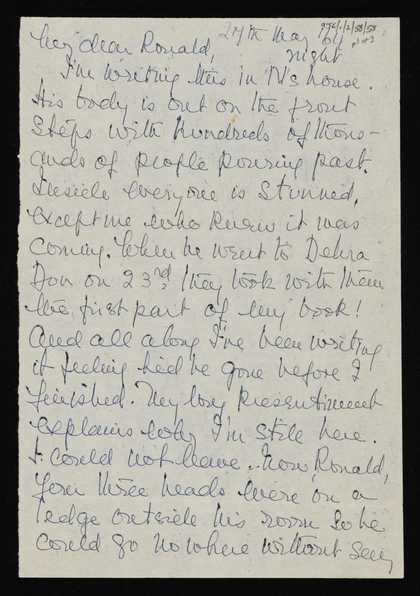 27th May
night
My dear Ronald,
I'm writing this in N's house.
His body is out on the front
steps with hundreds of thous-
ands of people pouring past.
Inside everyone is stunned,
except me who knew it was
coming. When he went to Dehra
Dun on 23rd, they took with them
the first part of my book!
And all along I've been writing
it feeling he'd be gone before I
finished. My long presentiment
explains why I'm still here.
I could not leave. Now, Ronald,
your three heads were on a
ledge outside his room so he
could go nowhere without seeing